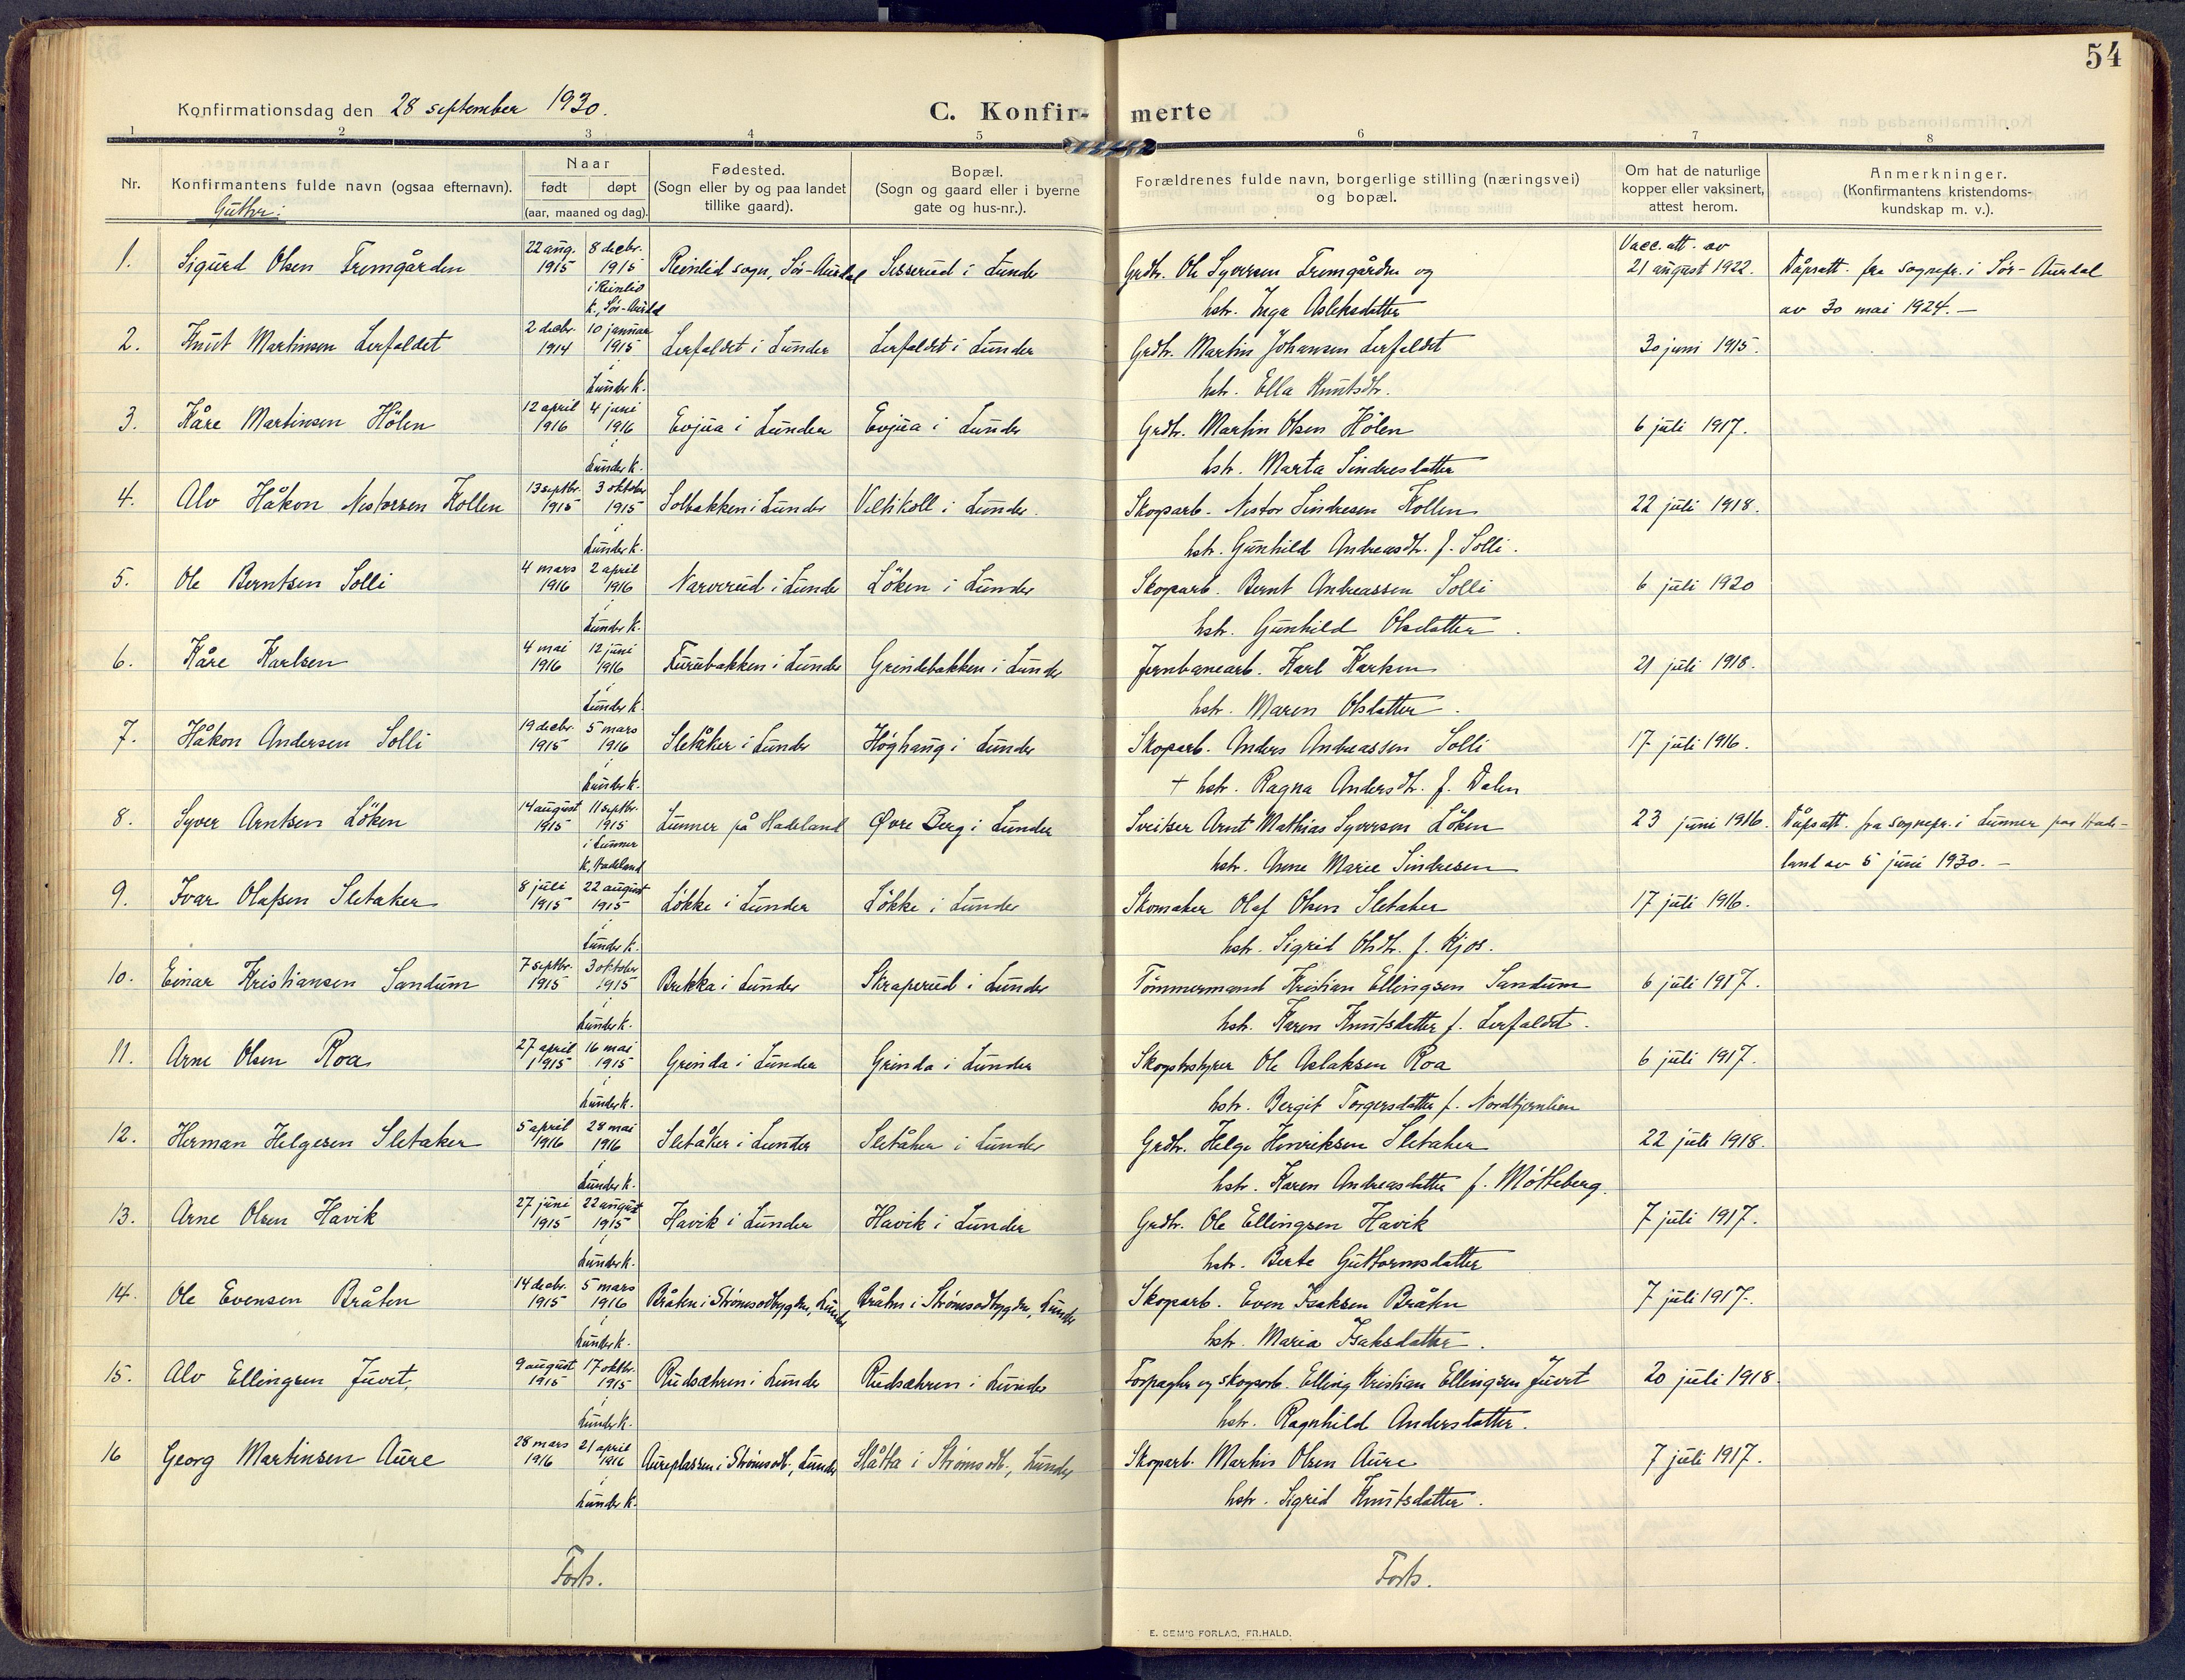 54
Konfirmationsdag den 28 september 1930.
C. Konfir- merte
1 2 3 4 5 6 7 8
Nr.
Konfirmantens fulde navn (ogsaa efternavn).
Gutter:
Naar
født døpt
(aar, maaned og dag).
Fødested.
(Sogn eller by og paa landet
tillike gaard).
Bopæl.
(Sogn og gaard eller i byerne
gate og hus-nr.).
Forældrenes fulde navn, borgerlige stilling (næringsvei)
og bopæl.
Om hat de naturlige
kopper eller vaksinert,
attest herom.
Anmerkninger.
(Konfirmantens kristendoms-
kundskap m. v.).
1. Sigurd Olsen Fremgården 22 aug. 1915 8 decbr. 1915 Reinlid sogn, Sør-Aurdal Sesserud i Lunder Grdbr. Ole Syversen Fremgården og Vacc. att. av 21 august 1922. Dåpsatt. fra sognepr. i Sør-Aurdal
i Reinlid k., Sør-Aurdal hstr. Inga Aslaksdatter av 30 mai 1924. —
2. Knut Martinsen Lerfaldet 2 decbr. 1914 10 januar 1915 Lerfaldet i Lunder Lerfaldet i Lunder Grdbr. Martin Johansen Lerfaldet 30 juni 1915.
i Lunder k. hstr. Ella Knutsdtr.
3. Kåre Martinsen Hölen 12 april 1916 4 juni 1916 Evjua i Lunder Evjua i Lunder Grdbr. Martin Olsen Hölen 6 juli 1917.
i Lunder k. hstr. Marta Sindresdatter
4. Alv Håkon Nestorsen Kollen 13 septbr. 1915 3 oktober 1915 Solbakken i Lunder Veltikoll i Lunder. Skogarb. Nestor Sindresen Kollen 22 juli 1918.
i Lunder k. hstr. Gunhild Andreasdtr. f. Solli.
5. Ole Berntsen Solli 4 mars 1916 2 april 1916 Narverud i Lunder Löken i Lunder Skogarb. Bernt Andreassen Solli 6 juli 1920
i Lunder k. hstr. Gunhild Olsdatter.
6. Kåre Karlsen 4 mai 1916 12 juni 1916 Furubakken i Lunder Grendebakken i Lunder Jernbanearb. Karl Karlsen 21 juli 1918.
i Lunder k. hstr. Maren Olsdatter.
7. Håkon Andersen Solli 19 decbr. 1915 5 mars 1916 Sletåker i Lunder Höghaug i Lunder Skogarb. Anders Andreassen Solli 17 juli 1916.
i Lunder k. + hstr. Ragna Andersdtr. f. Dalen
8. Syver Arntsen Löken 14 august 1915 11 septbr. 1915 Lunner på Hadeland Øvre Berg i Lunder Sveitser Arnt Mathias Syversen Löken 23 juni 1916. Dåpsatt. fra sognepr. i Lunner paa Hade-
i Lunner k., Hadeland hstr. Anne Marie Sindresen land av 5 juni 1930. —
9. Ivar Olafsen Sletaker 8 juli 1915 22 august 1915 Løkke i Lunder Løkke i Lunder Skomaker Olaf Olsen Sletaker 17 juli 1916.
i Lunder k. hstr. Sigrid Olsdtr. f. Kjos.
10. Einar Kristiansen Sandum 7 septbr. 1915 3 oktober 1915 Brekka i Lunder Skraperud i Lunder Tömmermand Kristian Ellingsen Sandum 6 juli 1917.
i Lunder k. hstr. Karen Knutsdatter f. Lerfaldet.
11. Arne Olsen Roa 27 april 1915 16 mai 1915 Grinda i Lunder Grinda i Lunder Skogbestyrer Ole Aslaksen Roa 6 juli 1917.
i Lunder k. hstr. Bergit Torgersdatter f. Nordtjernlien
12. Herman Helgesen Sletaker 5 april 1916 28 mai 1916 Sletåker i Lunder Sletåker i Lunder Grdbr. Helge Henriksen Sletaker 22 juli 1918.
i Lunder k. hstr. Karen Andreasdatter f. Mötteberg.
13. Arne Olsen Havik 27 juni 1915 22 august 1915 Havik i Lunder Havik i Lunder Grdbr. Ole Ellingsen Havik 7 juli 1917.
i Lunder k. hstr. Berte Guttormsdatter
14. Ole Evensen Bråten 14 decbr. 1915 5 mars 1916 Bråten i Strømsodbygden, Lunder Bråten i Strømsodbygden, Lunder Skogarb. Even Isaksen Bråten 7 juli 1917.
i Lunder k. hstr. Maria Isaksdatter.
15. Alv Ellingsen Juvet, 9 august 1915 17 oktbr. 1915 Rudsætren i Lunder Rudsætren i Lunder Forpagter og skogarb. Elling Kristian Ellingsen Juvet 20 juli 1918.
i Lunder k. hstr. Ragnhild Andersdatter.
16 Georg Martinsen Aure 28 mars 1916 21 april 1916 Aureplassen i Strømsodb., Lunder Slåtta i Strømsodb., Lunder Skogarb. Martin Olsen Aure 7 juli 1917.
i Lunder k. hstr. Sigrid Knutsdatter.
Forts. Forts.
E. SEM'S FORLAG, FR.HALD.